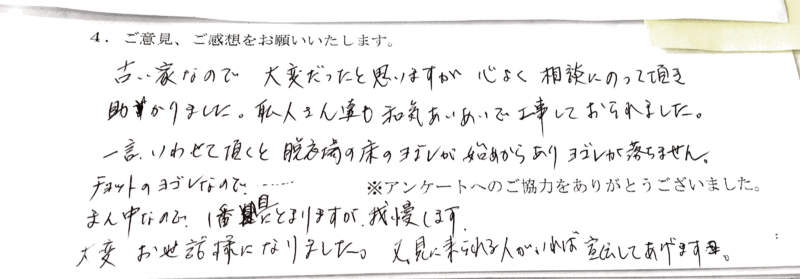 4．ご意見、ご感想をお願いいたします。
古い家なので 大変だったと思いますが 心よく 相談にのって頂き
助かりました。私人さん達も 和気あいあいで工事しておられました。
一言、いわせて頂くと 脱衣場の床のヨゴレが 始めからあり ヨゴレが落ちません。
チョットのヨゴレなので、……
※アンケートへのご協力をありがとうございました。
まん中なので、1番 目にとまりますが、我慢します
大変 お世話様になりました。 見に来られる人がいれば 宣伝してあげます。